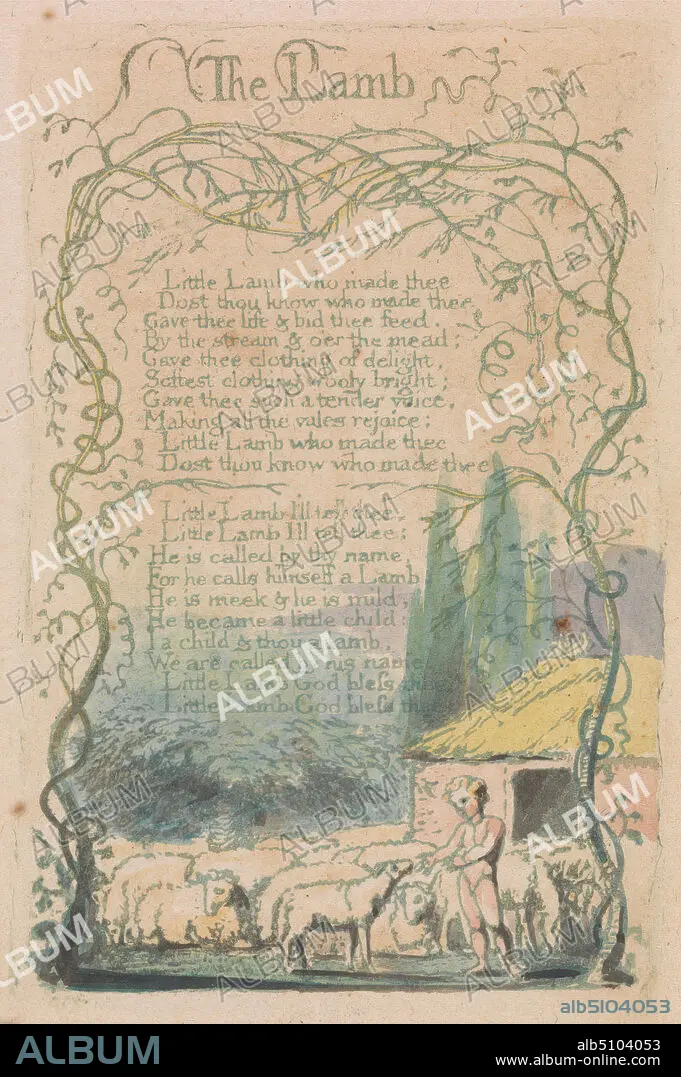 The Lamb
Little Lamb who made thee
Dost thou know who made thee
Gave thee life & bid thee feed.
By the stream & o'er the mead;
Gave thee clothing of delight,
Softest clothing wooly bright;
Gave thee such a tender voice,
Making all the vales rejoice:
Little Lamb who made thee
Dost thou know who made thee
Little Lamb Ill tell thee,
Little Lamb Ill tell thee;
He is called by thy name,
For he calls himself a Lamb
He is meek & he is mild,
He became a little child:
I a child & thou a lamb,
We are called by his name.
Little Lamb God bless thee.
Little Lamb God bless thee.
alb5104053
ALBUM
alb5104053
www.album-online.com